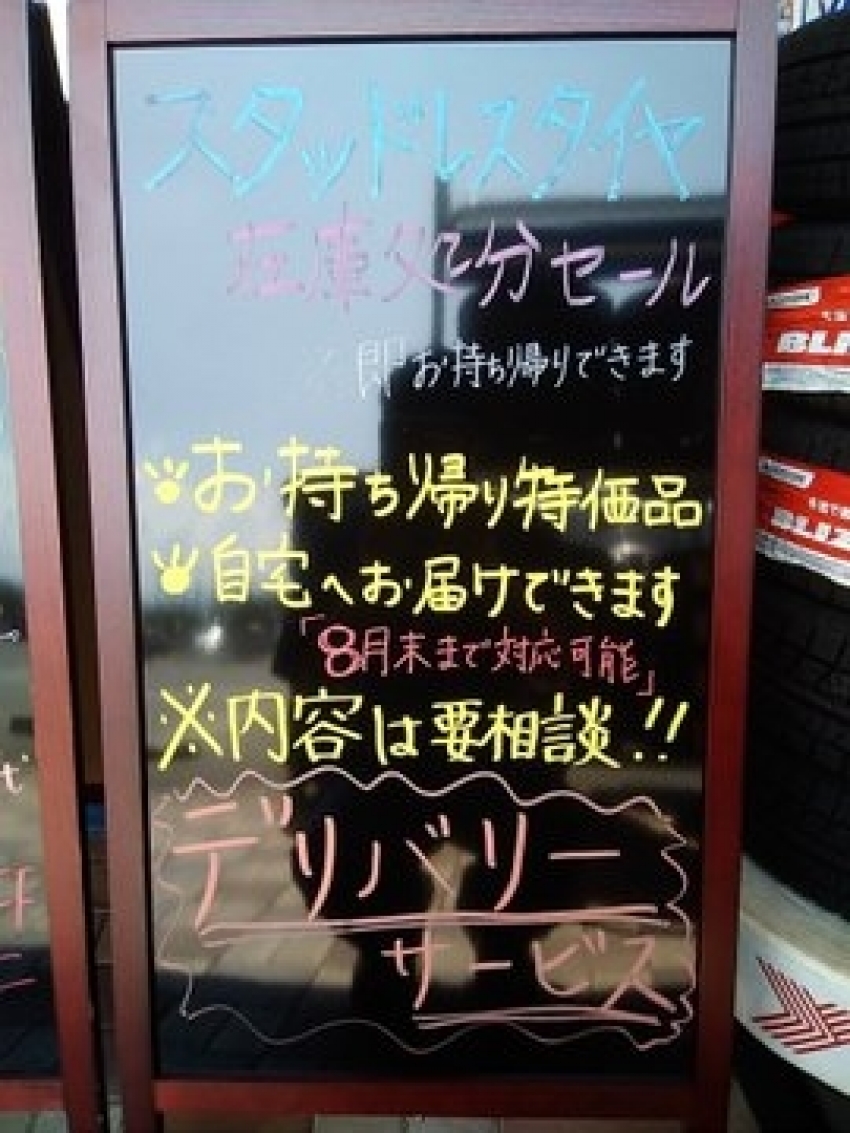 スタッドレスタイヤ
在庫処分セール
※即お持ち帰りできます
お持ち帰り特価品
自宅へお届けできます
「8月末まで対応可能」
※内容は要相談!!
デリバリー
サービス
BLIZ
BLIZ